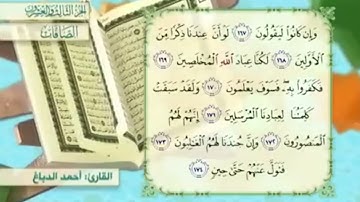 الجزء الثالث والعشرون
الصافات
وَإِن كَانُوا۟ لَيَقُولُونَ ١٦٧ لَوْ أَنَّ عِندَنَا ذِكْرًا مِّنَ
ٱلْأَوَّلِينَ ١٦٨ لَكُنَّا عِبَادَ ٱللَّهِ ٱلْمُخْلَصِينَ ١٦٩
فَكَفَرُوا۟ بِهِۦ فَسَوْفَ يَعْلَمُونَ ١٧٠ وَلَقَدْ سَبَقَتْ
كَلِمَتُنَا لِعِبَادِنَا ٱلْمُرْسَلِينَ ١٧١ إِنَّهُمْ لَهُمُ
ٱلْمَنصُورُونَ ١٧٢ وَإِنَّ جُندَنَا لَهُمُ ٱلْغَٰلِبُونَ ١٧٣
فَتَوَلَّ عَنْهُمْ حَتَّىٰ حِينٍ ١٧٤
القارئ: أحمد الدباغ